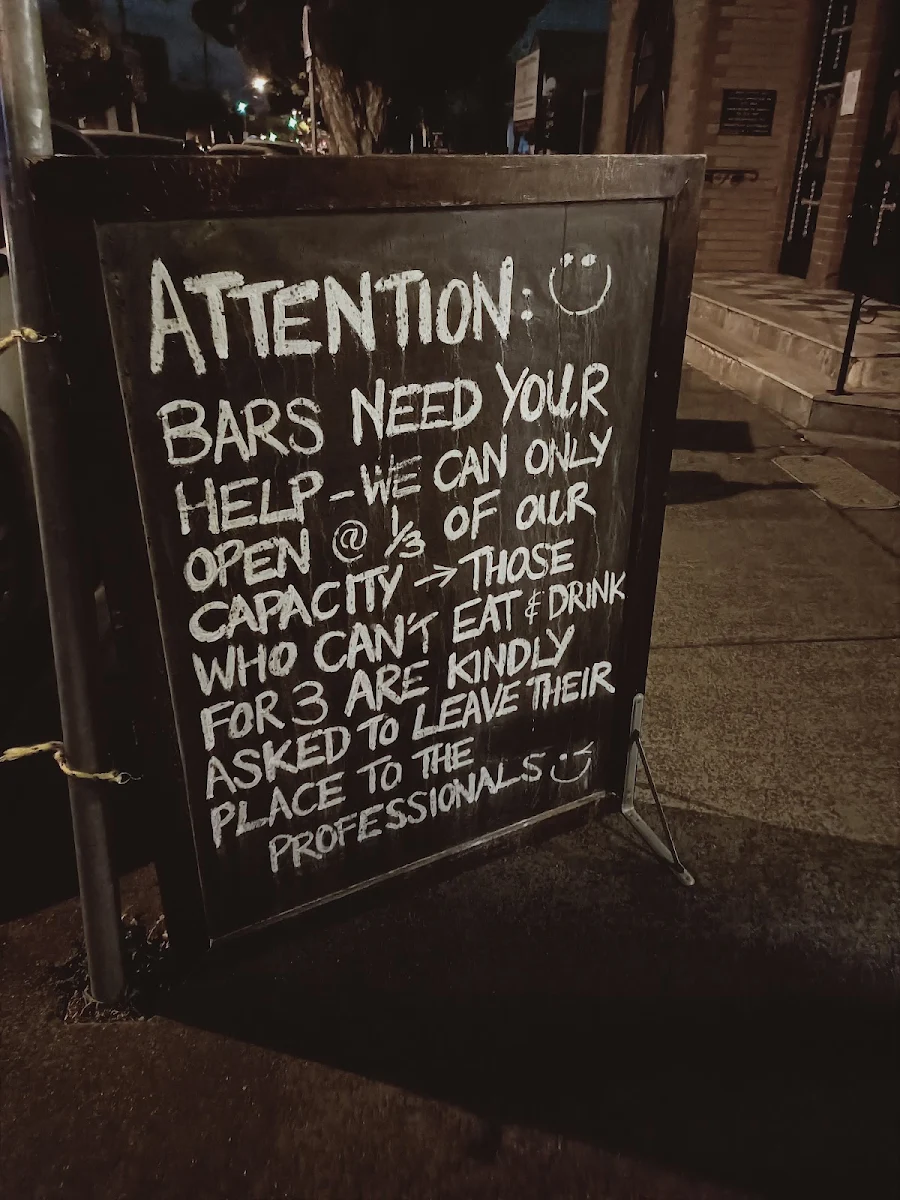 ATTENTION:
BARS NEED YOUR
HELP - WE CAN ONLY
OPEN @ 1/3 OF OUR
CAPACITY → THOSE
WHO CAN'T EAT & DRINK
FOR 3 ARE KINDLY
ASKED TO LEAVE THEIR
PLACE TO THE
PROFESSIONALS